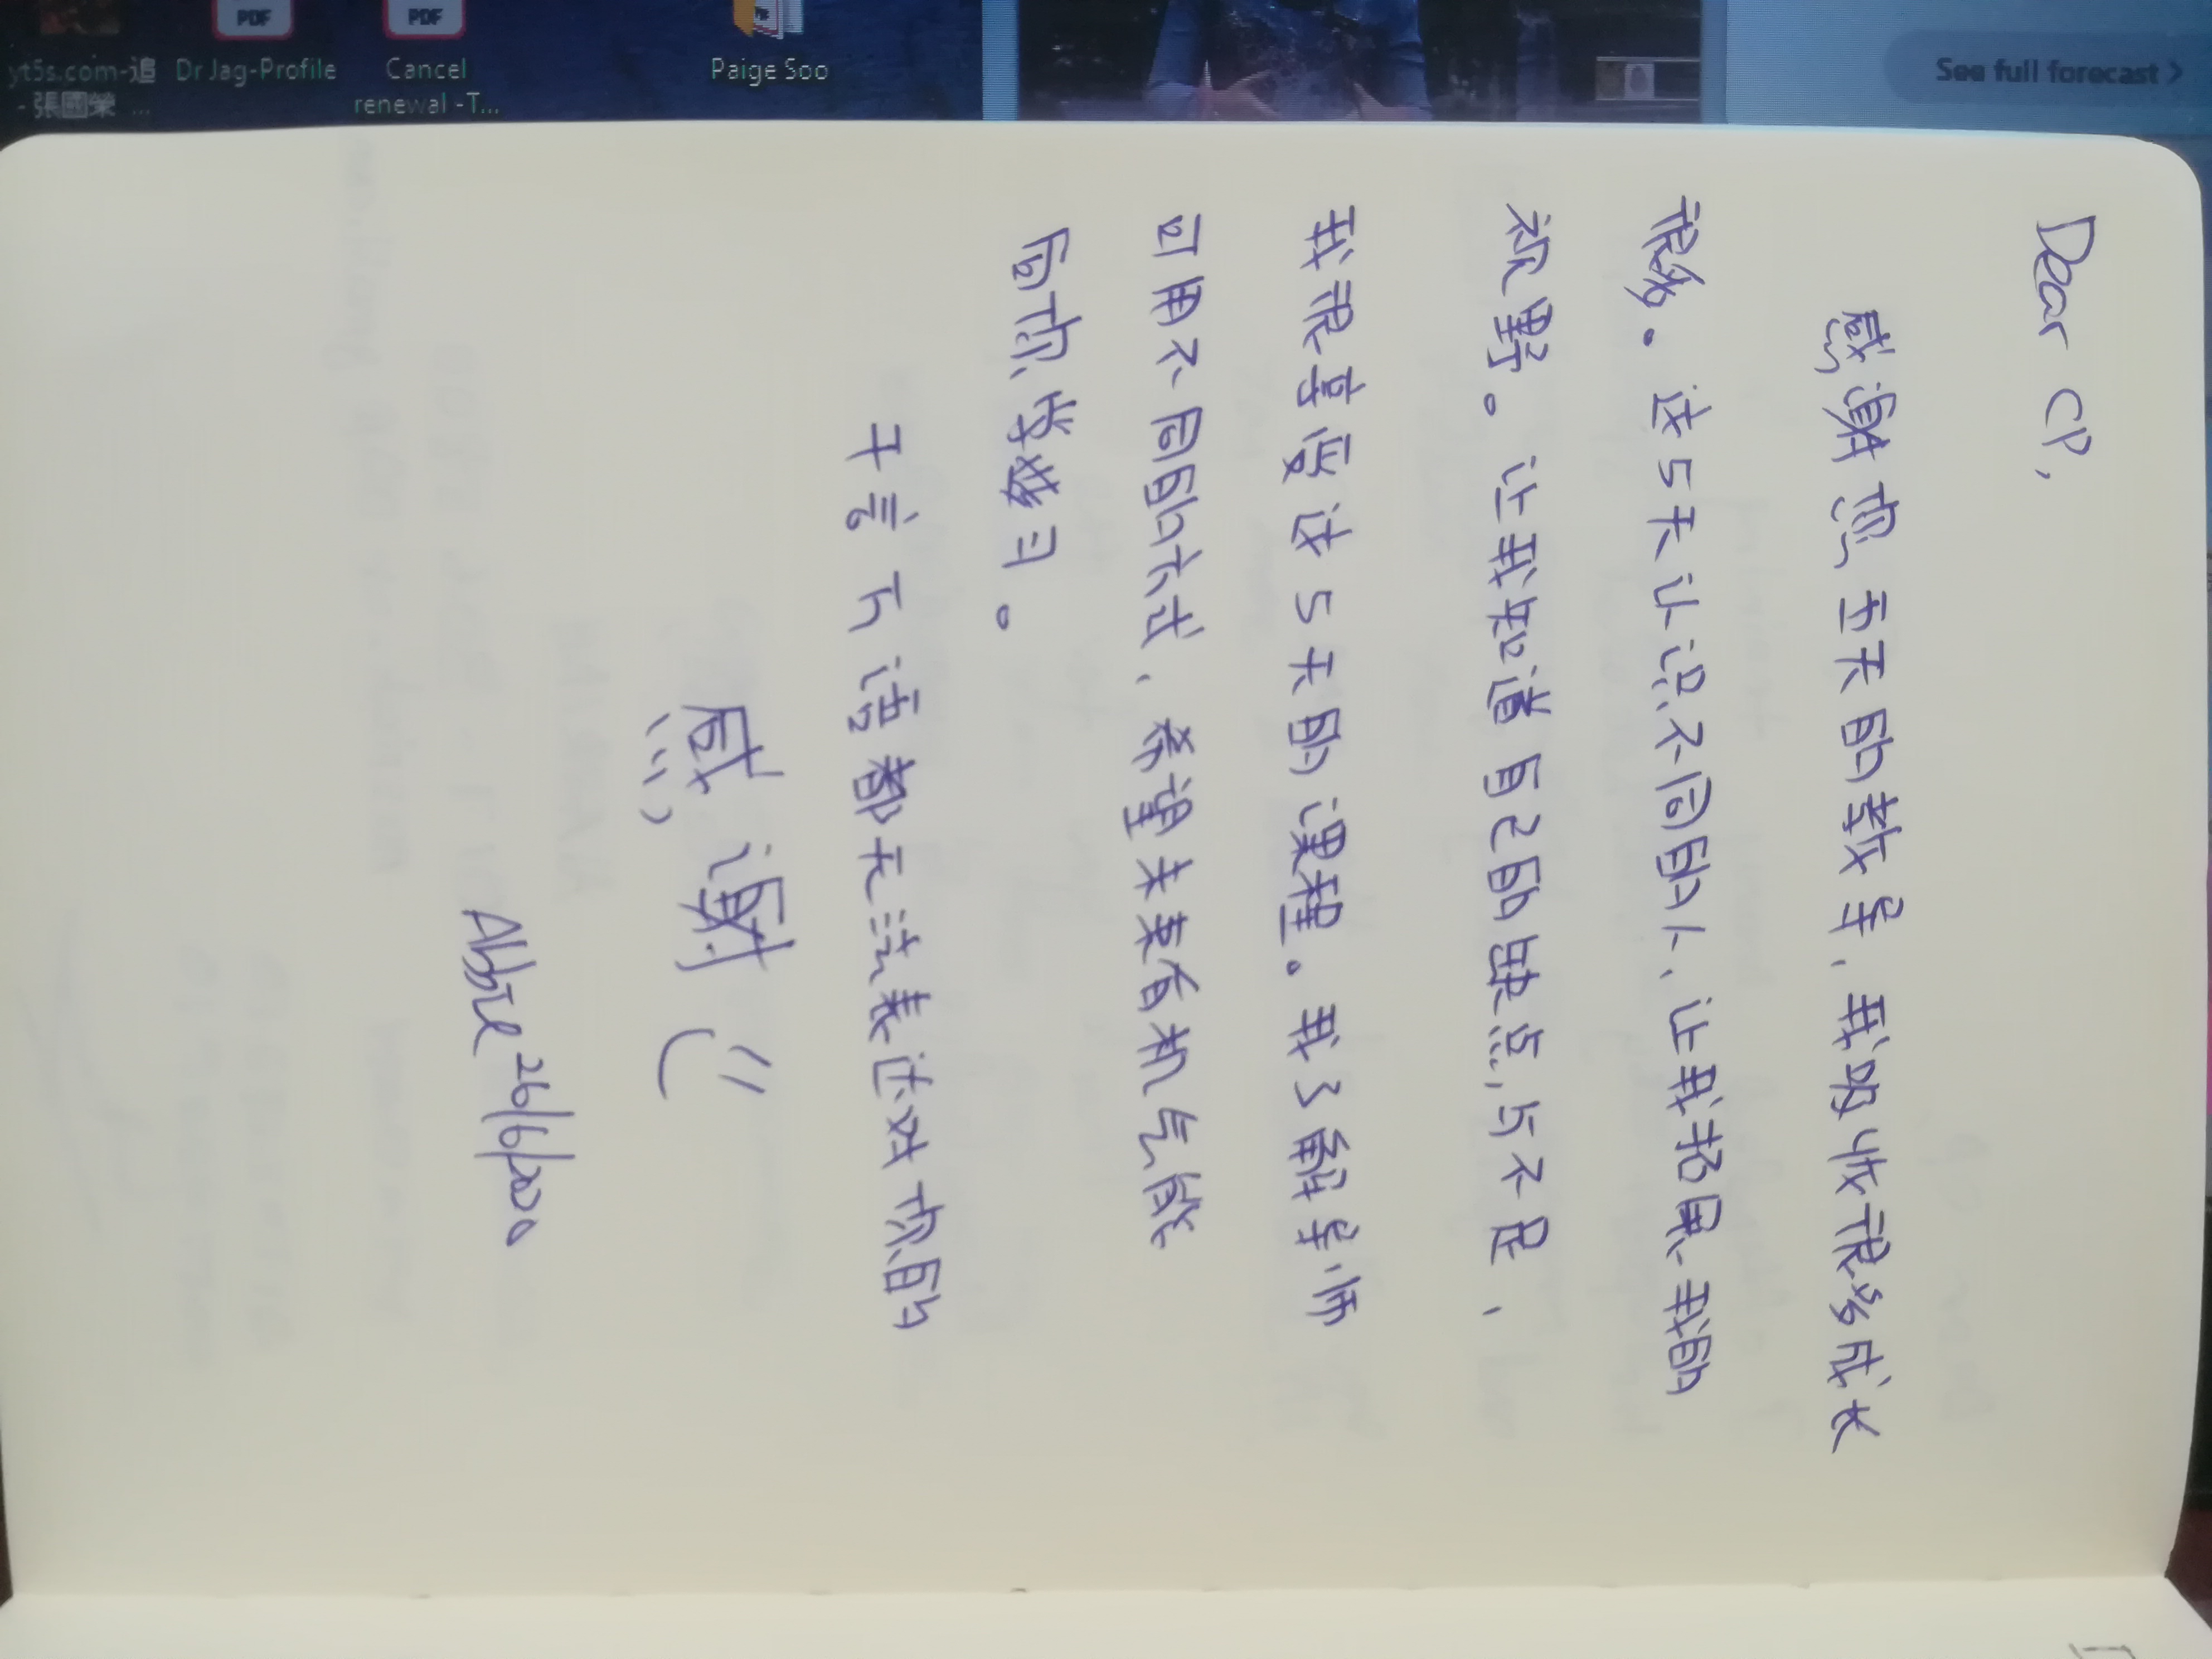 yt5s.com-追
- 張國榮 ...
Dr Jag-Profile
Cancel
renewal -T...
Paige Soo
See full forecast >
PDF
PDF
Dear CP,
感谢您五天的教导，我吸收很多成长
很多。这5天认识不同的人，让我拓展我的
视野。让我知道自己的缺点，与不足，
我很享受这5天的课程。我了解导师
可用不同的方式，希望未来有机会能
向你学习。
千言万语都无法表达对你的
感谢
Abbie 26/6/2020